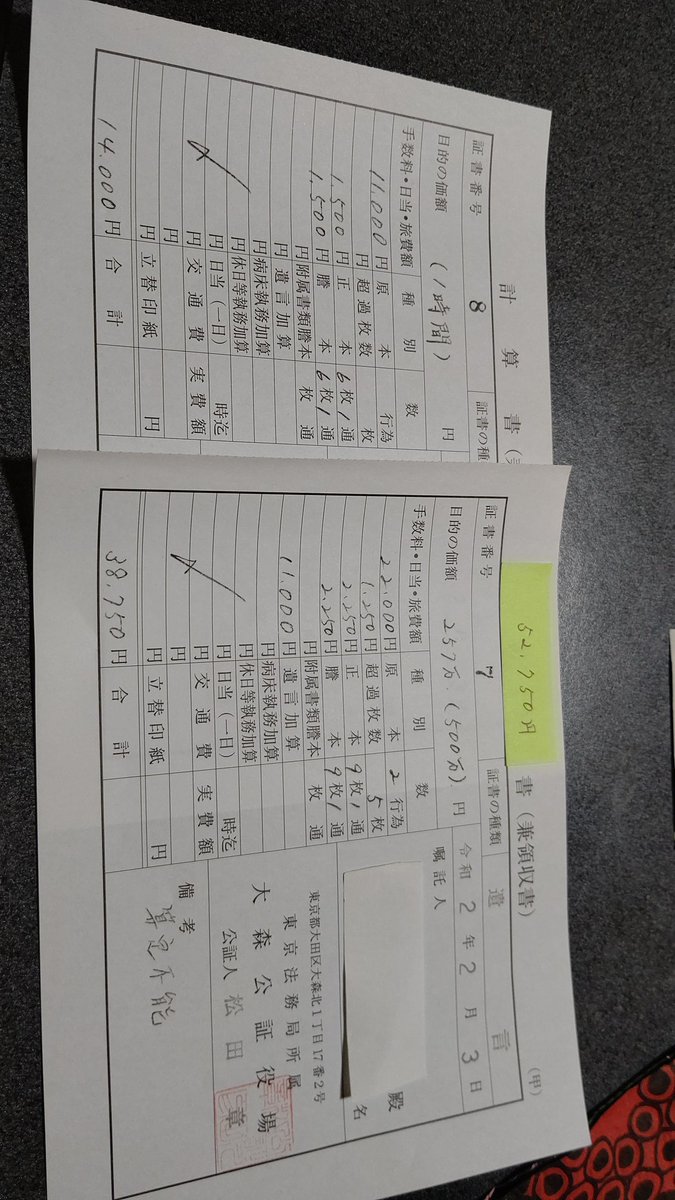 計算書(兼
証書番号 8 証書の種
目的の価額 (1時間) 円
手数料・日当・旅費額 種別 数
11.000円 原本 行為
円 超過枚数 枚
1.500円 正本 6枚1通
1.500円 謄本 6枚1通
円 附属書類謄本 枚 通
円 遺言加算
円 病床執務加算
円 休日等執務加算
円 日当(一日) 時迄
円 交通費 実費額
円
円 立替印紙 円
14.000円 合計
52,750円
書(兼領収書)
(甲)
証書番号 7 証書の種類 遺言
目的の価額 257万(500万)円
手数料・日当・旅費額 種別 数
22.000円 原本 2行為
1.250円 超過枚数 5枚
2.250円 正本 9枚1通
2.250円 謄本 9枚1通
円 附属書類謄本 枚 通
11.000円 遺言加算
円 病床執務加算
円 休日等執務加算
円 日当(一日) 時迄
円 交通費 実費額
円
円 立替印紙 円
38.750円 合計
令和2年2月3日
嘱託人
殿
名
東京都大田区大森北1丁目17番2号
東京法務局所属
大森公証役場
公証人 松田 章
備考
算定不能